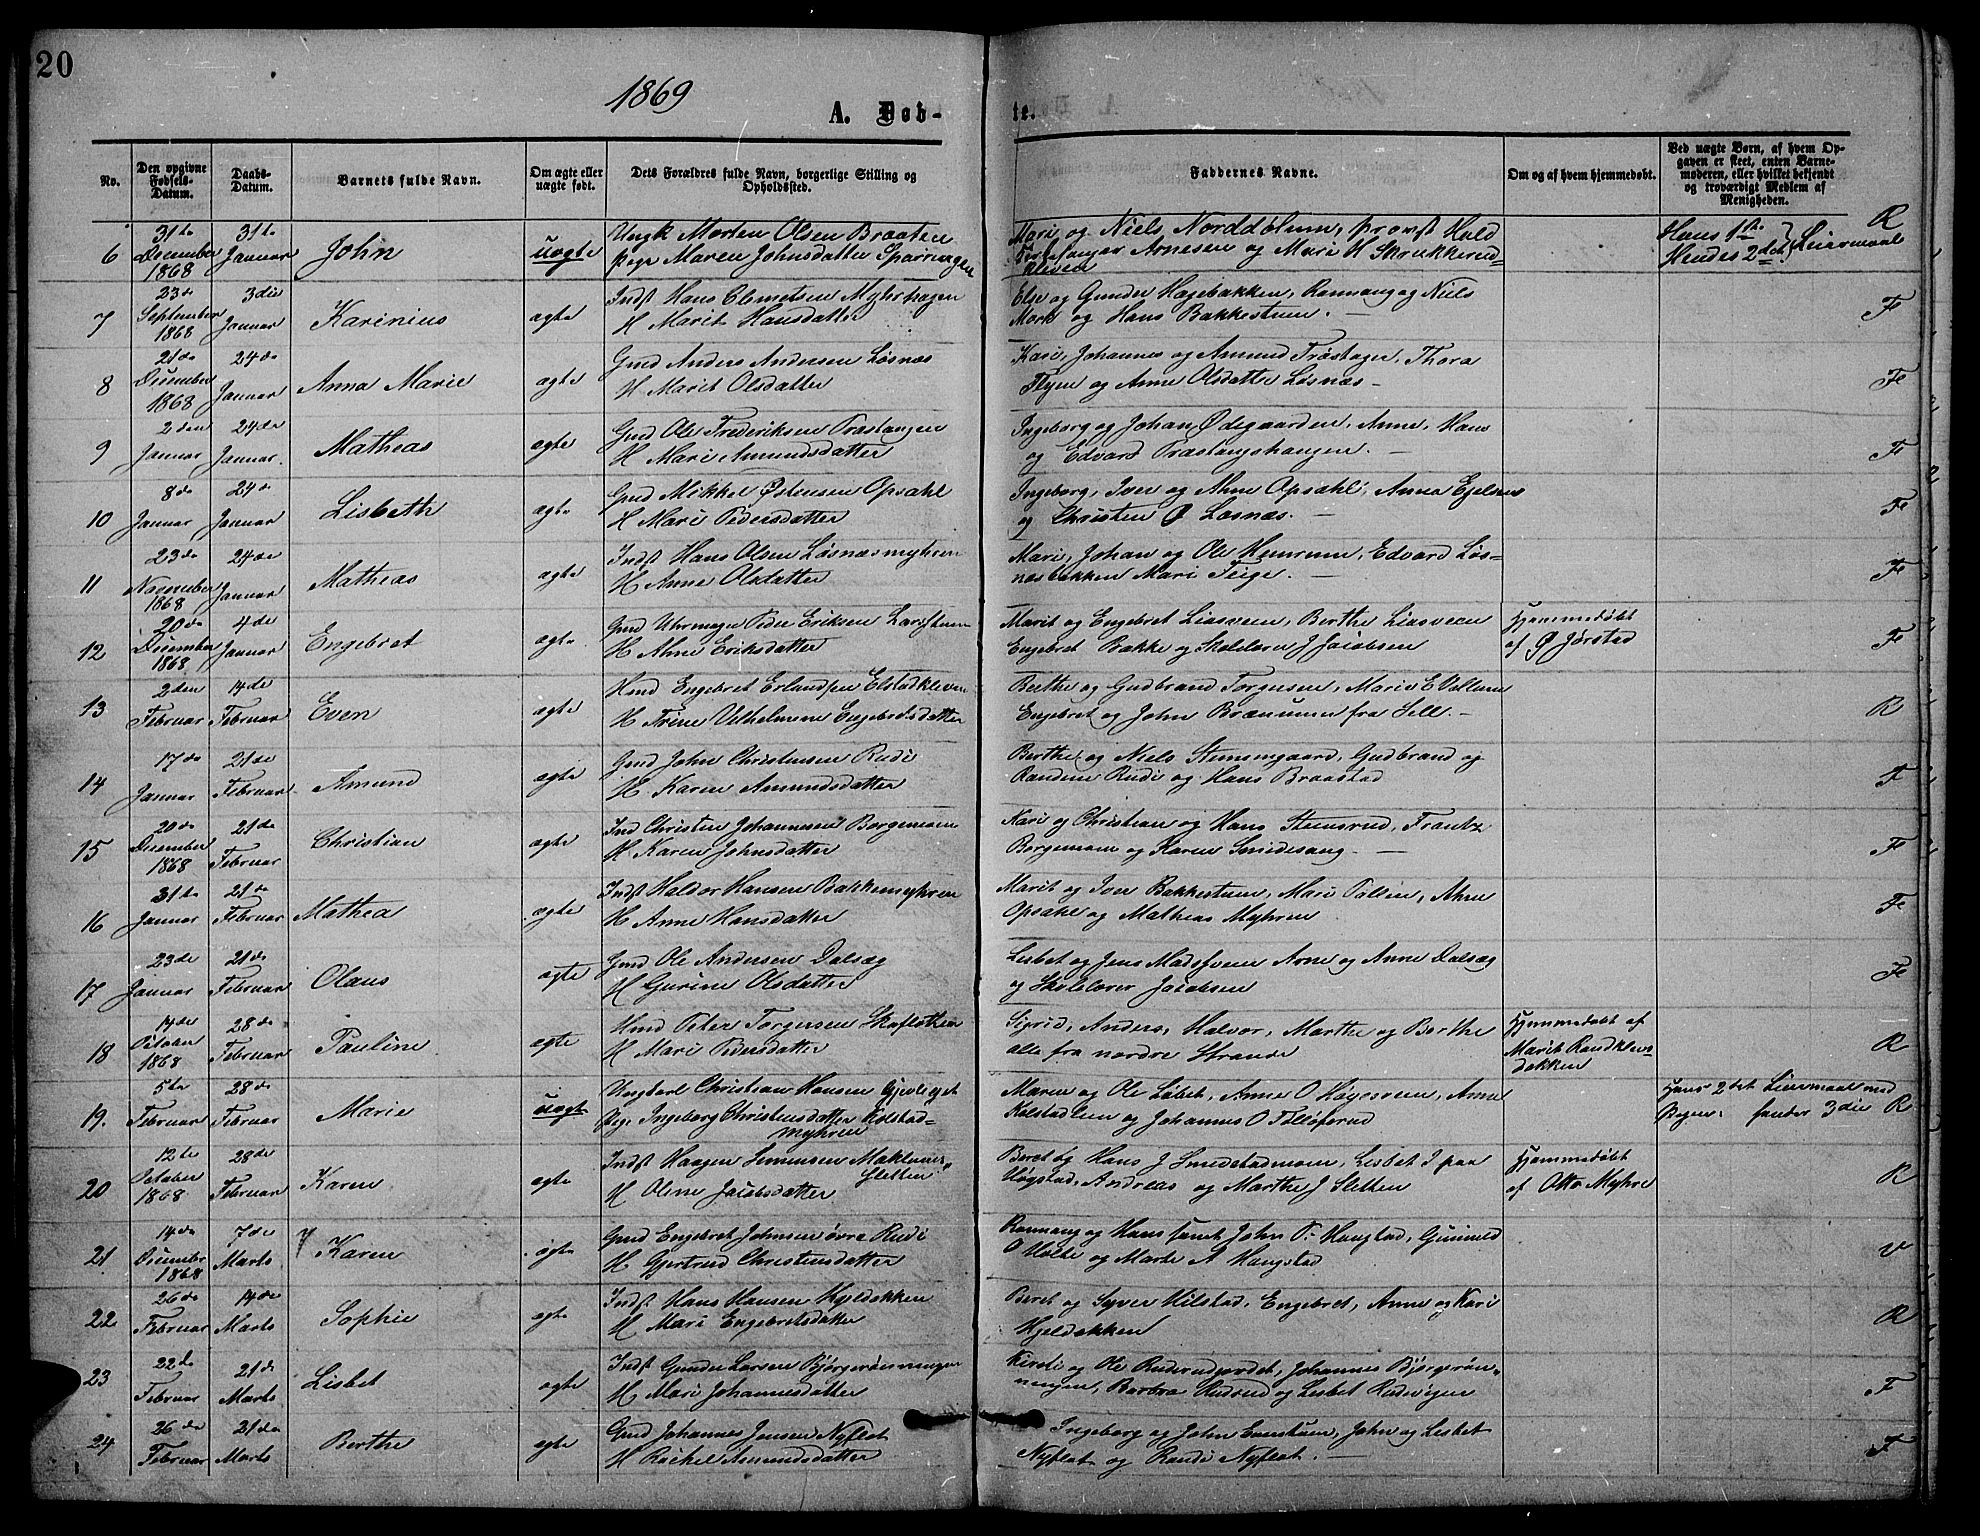 20
1869
A. Døb-
te.
No.
Den opgivne Fødsels-Datum.
Daabs-Datum.
Barnets fulde Navn.
Om ægte eller uægte født.
Dets Forældres fulde Navn, borgerlige Stilling og Opholdssted.
Faddernes Navne.
Om og af hvem hjemmedøbt.
Ved uægte Børn, af hvem Opgaven er skeet, enten Barnemoderen, eller hvilket bekjendt og troværdigt Medlem af Menigheden.
6 31te December 1868 31te Januar John uægte Ungk Morten Olsen Braaten
Pige Maren Johnsdatter
Mari og Niels Norddølum, Provst Hald
Arnesen og Mari H
Hans 1ste Hendes 2den Leiermaal R
7 23de September 1868 3die Januar Karinius ægte Indst Hans Clemetsen Myhrhagen
H Marit Hansdatter
Else og Gunder Hagebakken, Rannaug og Niels
Mork og Hans Bakkestuen. — F
8 21de December 1868 24de Januar Anna Marie ægte Gmd Anders Andersen Løsnæs
H Marit Olsdatter
Kari, Johannes og Amund Trøstager, Thora
Flyen og Anne Olsdatter Løsnæs — F
9 2den Januar 24de Januar Mathias ægte Gmd Ole Frederiksen Træstangen
H Mari Amundsdatter
Ingeborg og Johan Ødegaarden, Anne, Hans
og Edvard Træstangshaugen. — F
10 8de Januar 24de Januar Lisbeth ægte Gmd Mikkel Østensen Opsahl
H Mari Pedersdatter
Ingeborg, Iver og Ahne Opsahl, Anna
og Christen Ø Løsnæs. — F
11 23de November 1868 24de Januar Mathias ægte Indst Hans Olsen Løsnæsmyhren
H Anne Olsdatter
Mari, Johan og Ole Hemrum, Edvard Løs-
næsbakken Mari Teige. — F
12 20de December 1868 4de Januar Engebret ægte Gmd Uhrmager Peder Eriksen
H Ahne Eriksdatter
Marit og Engebret Liasveen, Berthe Liasveen
Engebret Bakke og Skolelærer J Jacobsen
Hjemmedøbt
af Ø Jørstad F
13 2den Februar 14de Februar Even ægte Hmd Engebret Erlandsen Elstadkleven
H Trine Vilhelmine Engebretsdatter
Berthe og Gudbrand Torgersen, Marie E Vollum
Engebret og John Brænumen fra Sell. — R
14 17de Januar 21de Februar Amund ægte Gmd John Christensen Rudi
H Karen Amundsdatter
Berthe og Niels Stensengaard, Gudbrand og
Randine Rudi og Hans Braastad F
15 20de December 1868 21de Februar Christian ægte Ind Christen Johannesen Borgemoen
H Karen Johnsdatter
Kari og Christian og Hans Stensrud, Frantz
Borgemoen og Karen Smidesang — F
16 31te Januar 21de Februar Mathea ægte Indst Haldor Hansen Bakkemyhren
H Anne Hansdatter
Marit og Iver Bakkestuen, Mari Pallin, Ahne
Opsahl og Mathias Myhren F
17 23de Januar 21de Februar Olaus ægte Gmd Ole Andersen Dalsæg
H Gurine Olsdatter
Lisbet og Jens Arne og Anne Dalsæg
og Skolelærer Jacobsen F
18 14de October 1868 28de Februar Pauline ægte Hmd Peter Torgersen Skafløthen
H Mari Pedersdatter
Sigrid, Anders, Halvor, Marthe og Berthe
alle fra nordre Strande
Hjemmedøbt af
Marit Randklevs-
bakken R
19. 5te Februar 28de Februar Marie uægte Ungkarl Christian Hansen
Pige Ingeborg Christensdatter Kolstad-
myhren
Maren og Ole Løbet, Anne O Høgesveen, Anne
Kolstadlien og Johannes O
Hans 2det Leiermaal med
3die R
20 12te October 1868 28de Februar Karen ægte Indst Haagen Simensen
Sletten
H Oline Jacobsdatter
Beret og Hans J Smedstadmoen, Lisbet I paa
Høgstad, Andreas og Marthe J Sletten
Hjemmedøbt
af Otto Myhre R
21 14de December 1868 7de Marts Karen ægte Gmd Engebret Johnsen øvre Rudi
H Gjertrud Christensdatter
Rannaug og Hans samt John P. Haugstad, Gunnild
O Holte og Marte A Haugstad V
22 26de Februar 14de Marts Sophie ægte Indst Hans Hansen Hjeldakken
H Mari Engebretsdatter
Beret og Syver Hilstad, Engebret, Anne og Kari
Hjeldakken R
23 22de Februar 21de Marts Lisbet ægte Indst Gunder Larsen Bjørgerønningen
H Mari Johannesdatter
Kirsti og Ole Johannes Bjørgerøn-
ningen, Barbra og Lisbet F
24 26de Februar 21de Marts Berthe ægte Gmd Johannes Jensen Nyfløt
H Rachel Amundsdatter
Ingeborg og John John og Lisbet
Nyfløt og Randi Nyfløt. — F